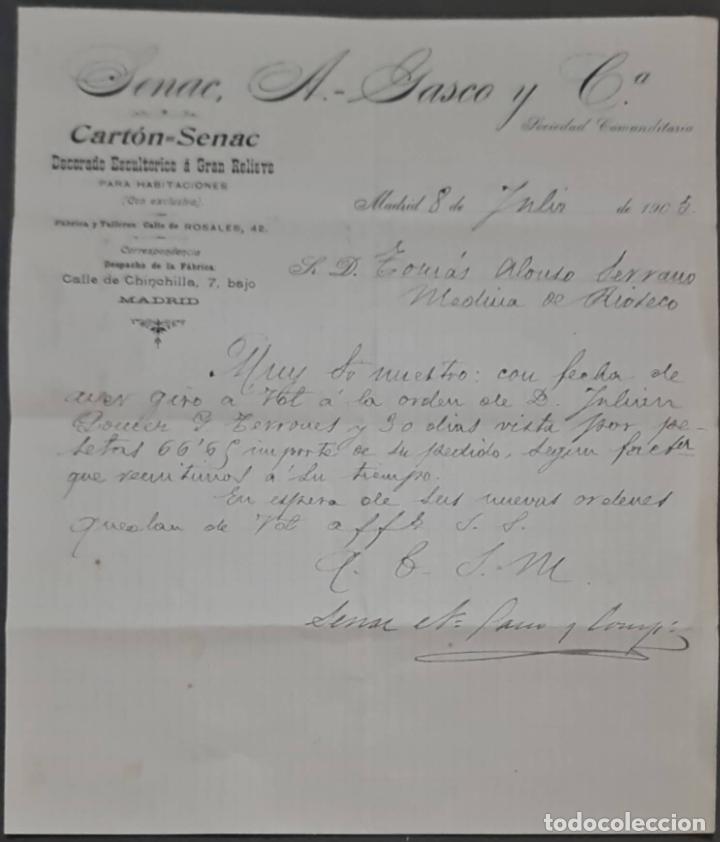 Senac, A.-Gasco y C.ª
Sociedad Comanditaria
Cartón-Senac
Decorado Escultorico á Gran Relieve
PARA HABITACIONES
(Con exclusiva)
Fábrica y Talleres: Calle de ROSALES, 42.
Correspondencia
Despacho de la Fábrica:
Calle de Chinchilla, 7, bajo
MADRID
Madrid 8 de Julio de 1903.
Sr. D. Tomás Alonso Serrano
Medina de Rioseco
Muy Sr nuestro: con fecha de
ayer giro a Vd á la orden de D. Julian
y 30 dias vista por pe-
setas 66'65 importe de su pedido, segun factura
que remitimos á su tiempo.
En espera de sus nuevas ordenes
quedan de Vd affs S. S.
Q. B. S. M.
Senac A. Gasco y Comp.ª
todocoleccion.net